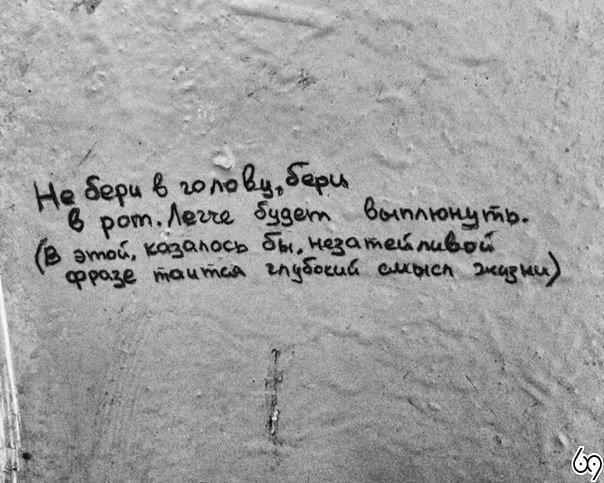 Не бери в голову, бери
в рот. Легче будет выплюнуть.
(В этой, казалось бы, незатейливой
фразе таится глубокий смысл жизни)
69